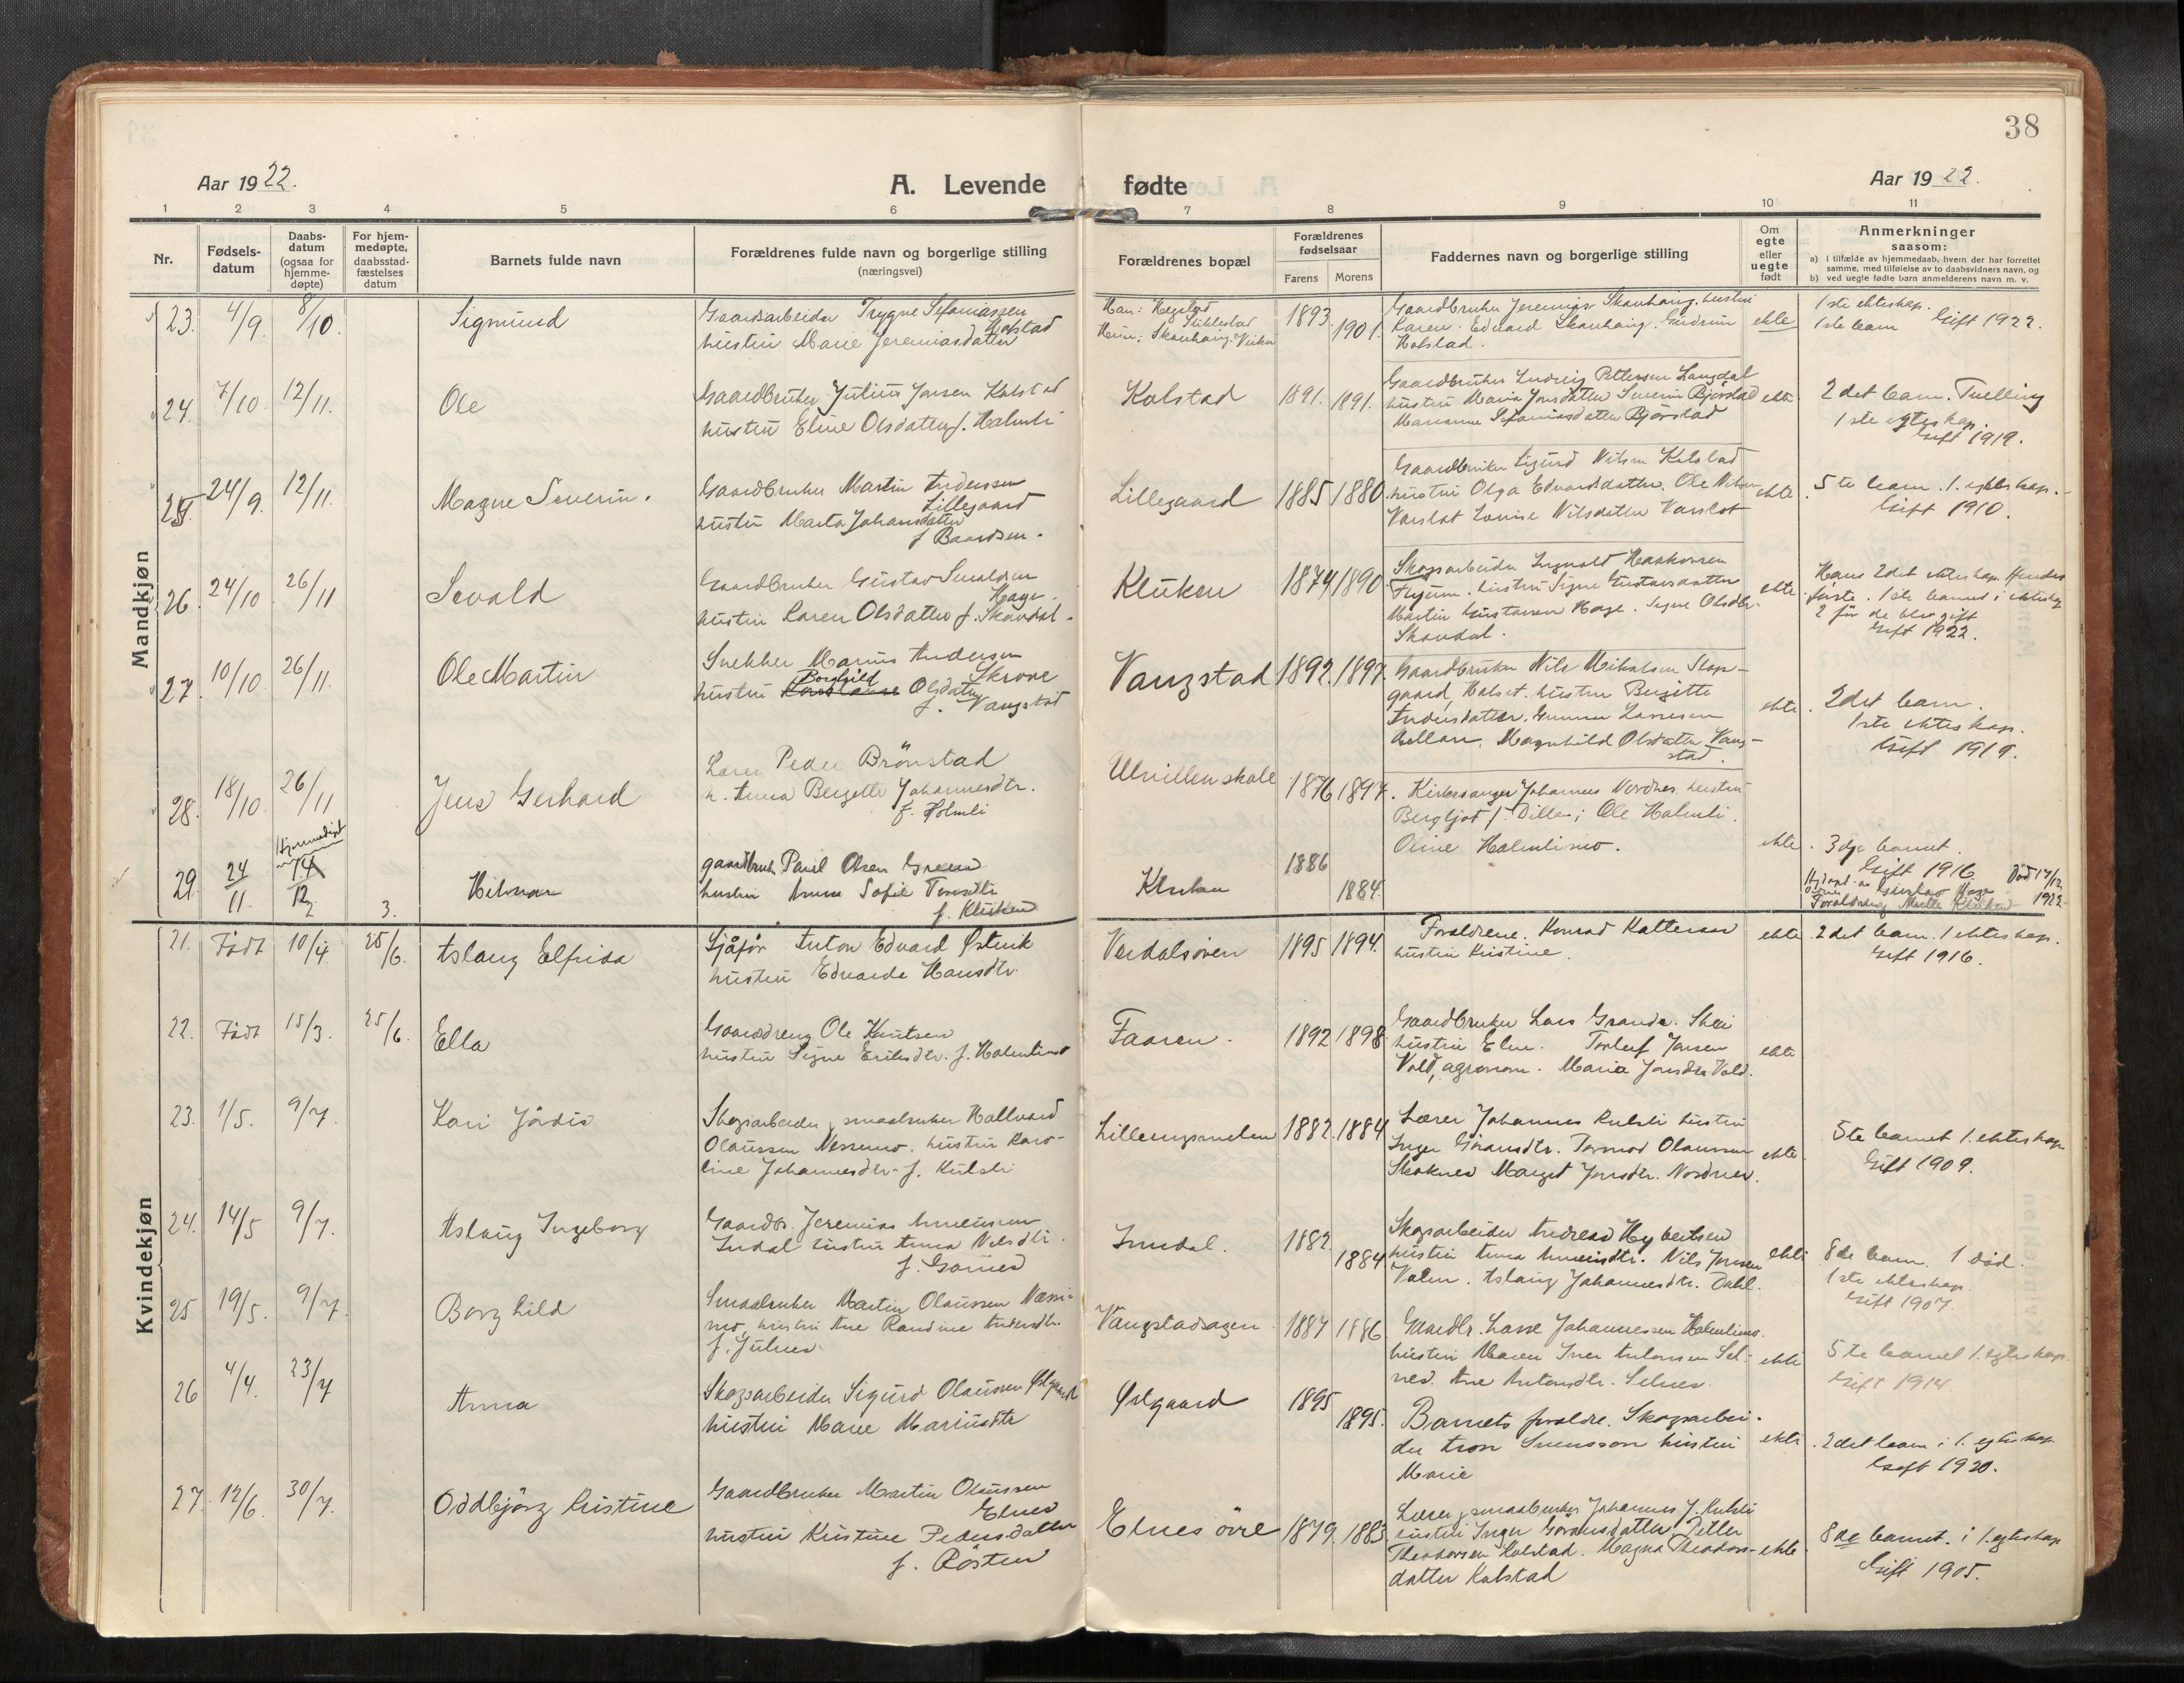 38
Aar 1922.
A. Levende fødte
Aar 1922.
1 2 3 4 5 6 7 8 9 10 11
Nr.
Fødsels-
datum
Daabs-
datum
(ogsaa for
hjemme-
døpte)
For hjem-
medøpte,
daabsstad-
fæstelses
datum
Barnets fulde navn
Forældrenes fulde navn og borgerlige stilling
(næringsvei)
Forældrenes bopæl
Forældrenes
fødselsaar
Farens Morens
Faddernes navn og borgerlige stilling
Om
egte
eller
uegte
født
Anmerkninger
saasom:
a) i tilfælde av hjemmedaab, hvem der har forrettet
samme, med tilføielse av to daabsvidners navn, og
b) ved uegte fødte barn anmelderens navn m. v.
Mandkjøn
23. 4/9. 8/10. Sigmund
Gaardsarbeider Trygve Sefaniassen
Kolstad
hustru Marie Jeremiasdatter
Han: Hegstad
Stiklestad
Hun: Skauhaug. Vuku
1893 1901.
Gaardbruker Jeremias Skauhaug. hustru
Karen. Edvard Skauhaug. Gudrun
Kolstad.
ekte
1ste ekteskap.
1ste barn Gift 1922.
24. 7/10. 12/11. Ole
Gaardbruker Julius Jensen Kolstad
hustru Eline Olsdatter f. Holmli
Kolstad 1891. 1891.
Gaardbruker Ludvig Pettersen Langdal
hustru Maria Jonsdatter Severin Bjørstad
Marianne Sefaniasdatter Bjørstad
ekte
2det barn. Tvelling
1ste egteskap.
Gift 1919.
25. 24/9. 12/11. Magne Severin.
Gaardbruker Martin Anderssen
Lillegaard
hustru Marta Johansdatter
f Baardsen.
Lillegaard 1885 1880
Gaardbruker Sigurd Nilsen Kolstad
hustru Olga Edvardsdatter. Ole Nilsen
Varslot Lovise Nilsdatter Varslot
ekte
5te barn. 1. egteskap.
Gift 1910.
26. 24/10. 26/11 Sevald
Gaardbruker Gustav Sevaldsen
Hage.
hustru Karen Olsdatter f. Skavdal.
Kluken 1874 1890
Skogsarbeider Ingvald Haakonsen
hustru Signe Gustavsdatter
Martin Gustavsen Hage. Signe Olsdtr.
Skavdal.
ekte
Hans 2det ekteskap. Hendes
første. 1ste barnet i ekteskap
2 før de blev gift
Gift 1922.
27. 10/10 26/11. Ole Martin
Snekker Marius Andersen
Skrove
Borghild
hustru Olsdatter
f. Vangstad
Vangstad 1892. 1897.
Gaardbruker Nils Mikalsen
gaard, hustru Bergitte
Andersdatter. Gunnar Larsen
Magnhild Olsdatter Vang-
stad.
ekte
2det barn.
1ste ekteskap.
Gift 1919.
28. 18/10. 26/11 Jens Gerhard
Lærer Peder Brönstad
h. Anna Bergette Johannesdtr.
f. Holmli
Ulvillen skole 1876 1897.
Kirkesanger Johannes Nordnes. hustru
Bergljot f. Dillan; Ole Holmli.
Oline Holmlimo.
ekte
3dje barnet.
Gift 1916
29. 24/11. Hjemmedøpt 14/12 3. Hilmar
gaardbruk. Paul Olsen Green
hustru Anna Sofie
f. Kluken
Kluken 1886 1884.
Død 17/12
1922
Hj.døpt av Gustav Hage
Forældrene, Marta Kluken
Kvindekjøn
21. Født 10/4 25/6. Aslaug Elfrida
Sjåfør Anton Edvard Østvik
hustru Edvarda Hansdtr.
Verdalsøren 1895 1894.
Forældrene. Konrad Kattersen
hustru Kristine.
ekte
2det barn. 1 ekteskap.
Gift 1916.
22. Født 15/3. 25/6. Ella
Gaardsdreng Ole Knutsen
hustru Signe Eriksdtr. f. Holmlimo
Faaren. 1892 1898
Gaardbruker Lars Grande. Skei
hustru Elen. Torleif Jensen
Vold, agronom. Maria Jonsdtr Vold.
ekte
23. 1/5. 9/7. Kari Jørdis
Skogsarbeider, smaabruker Hallvard
Olaussen Nessemo. hustru Karo-
line Johannesdtr. f. Kulsli
Lillengsmelen 1882. 1884
Lærer Johannes Kulsli hustru
Inger Göransdtr. Tormod Olaussen
Skoknes Marget Jonsdtr. Nordnes.
ekte
5te barnet 1. ekteskap
Gift 1909.
24. 14/5 9/7. Aslaug Ingeborg
Gaardbr. Jeremias
Indal hustru Anna Nilsdtr.
f. Garnes
Inndal. 1882. 1884
Skogsarbeider Andreas Hybertsen
hustru Anna Nils Jensen
Valen. Aslaug Johannesdtr. Dahl.
ekte
8de barn. 1 død.
1ste ekteskap.
Gift 1907.
25 19/5. 9/7. Borghild
Smaabruker Martin Olaussen Næss-
mo, hustru Ane Randine Andersdtr.
f. Julnes.
Vangstadsagen 1887 1886.
Gaardbr. Lasse Johannessen Holmlimo.
hustru Maren Iver Antonsen Sel-
nes. Ane Antonsdtr. Selnes.
ekte
5te barnet 1. egteskap.
Gift 1914.
26 4/4. 23/7 Anna
Skogsarbeider Sigurd Olaussen Østgaard
hustru Marie Mariusdtr
Østgaard 1895 1895.
Barnets forældre. Skogsarbei-
der Tron Svensson hustru
Marie
ekte
2det barn i 1. egteskap
Gift 1920.
27. 12/6. 30/7. Oddbjørg Kristine
Gaardbruker Martin Olaussen
Elnes
hustru Kristine Pedersdatter
f. Rösten
Elnes övre 1879. 1883
Lærer, smaabruker Johannes J. Kulsli
hustru Inger Göransdatter, Petter
Theodorsen Kolstad. Magna Theodors-
datter Kolstad
ekte
8de barnet. i 1. egteskap
Gift 1905.